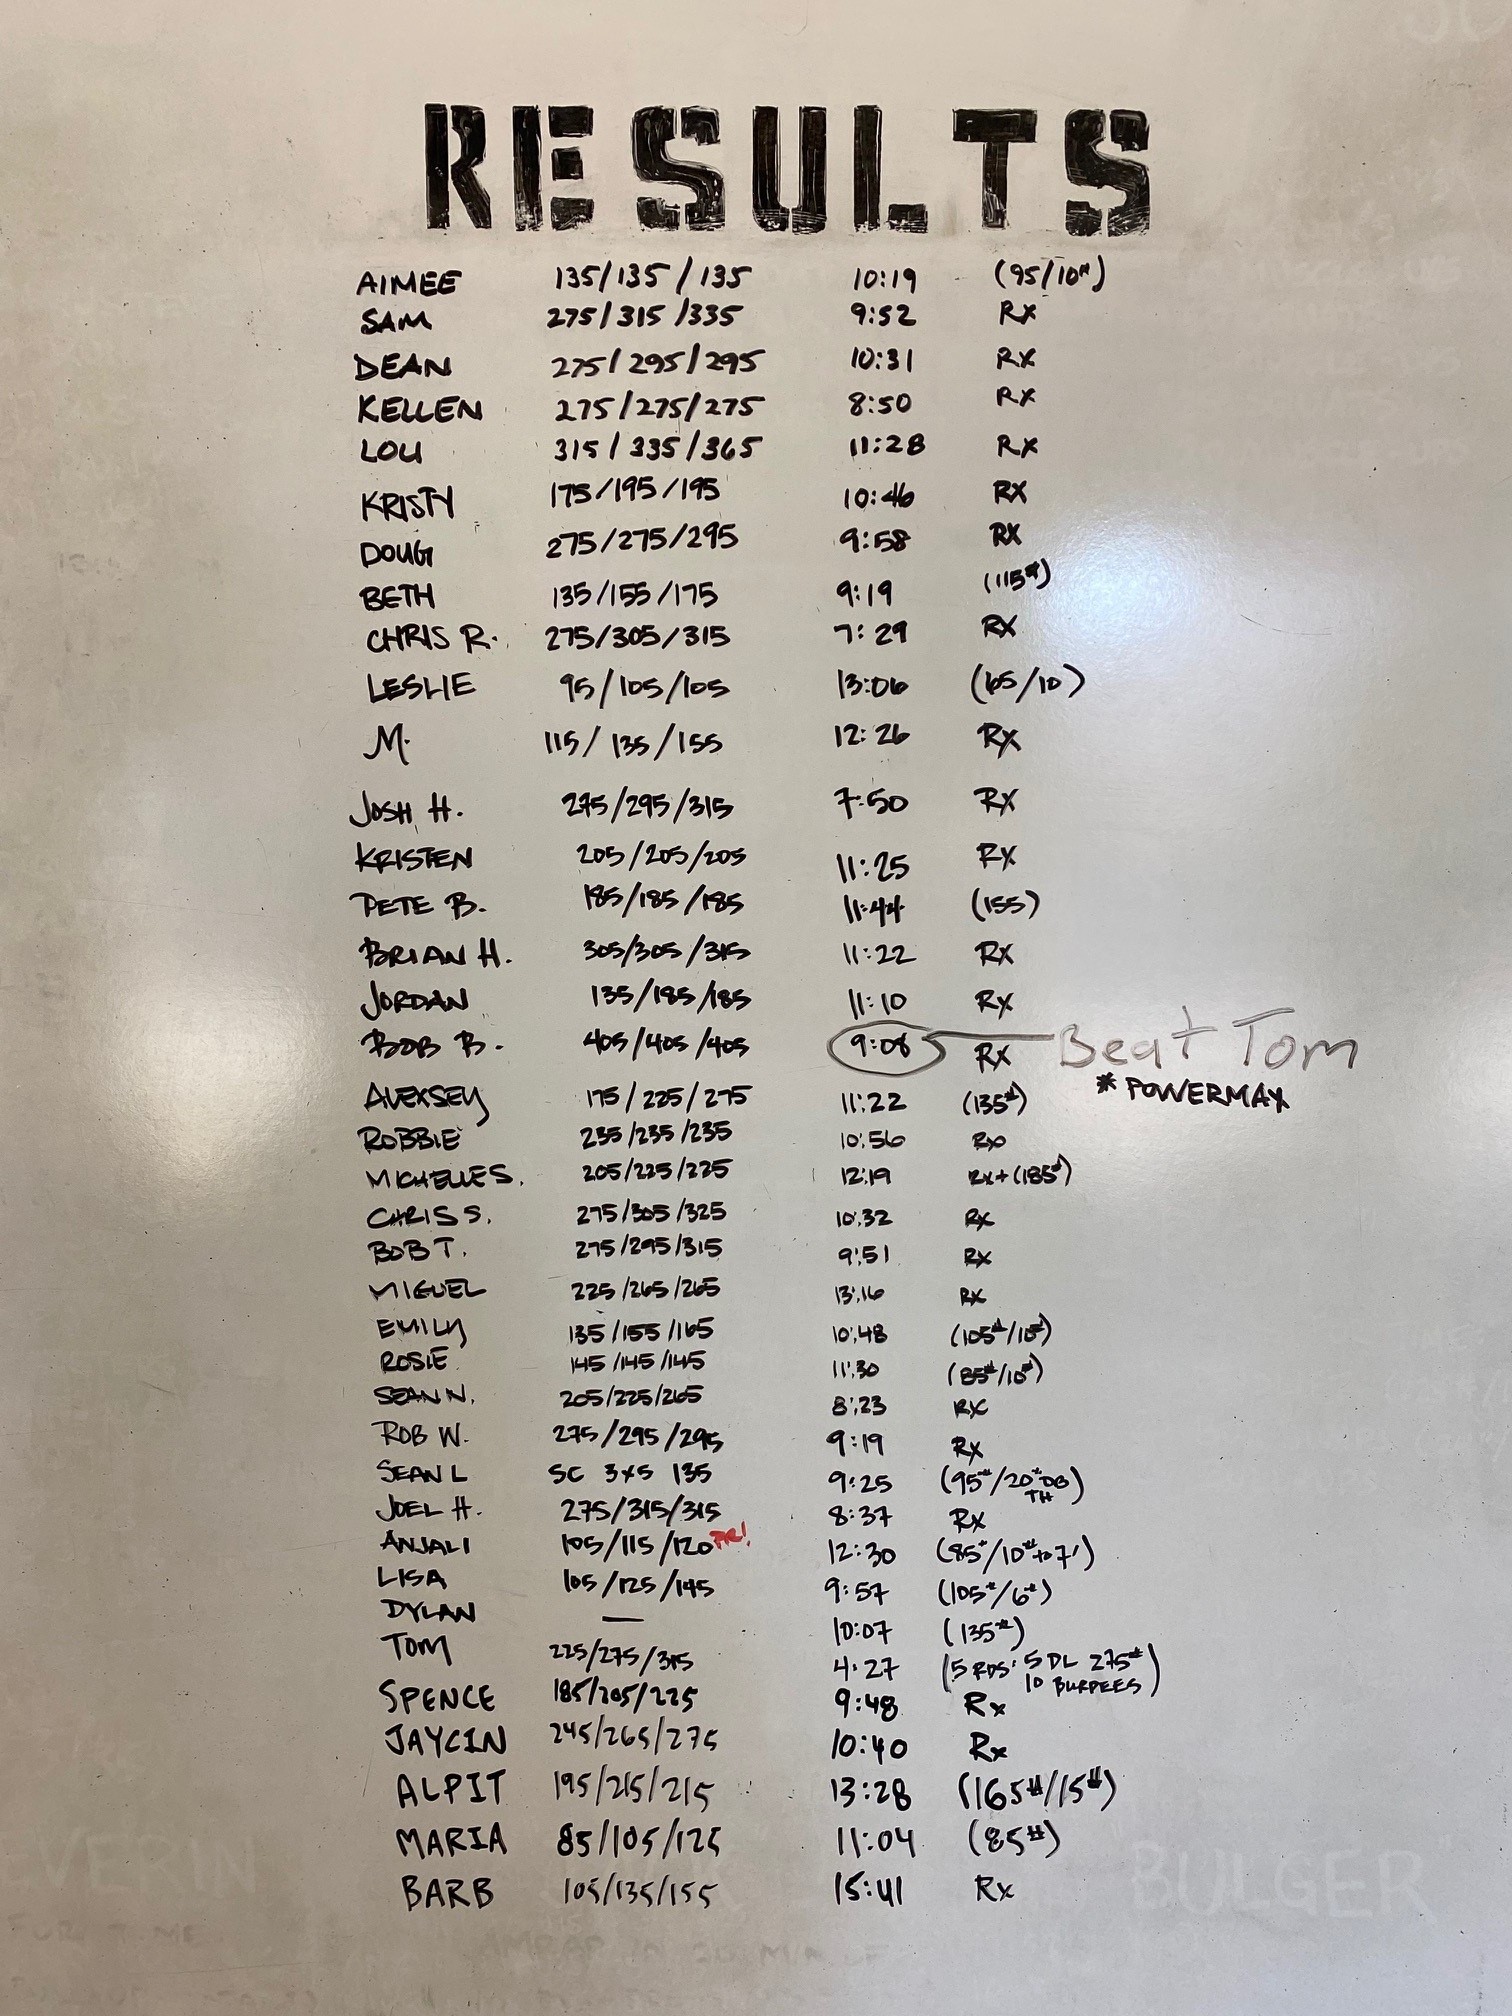 RESULTS
AIMEE 135/135/135 10:19 (95/10#)
SAM 275/315/335 9:52 RX
DEAN 275/295/295 10:31 RX
KELLEN 275/275/275 8:50 RX
LOU 315/335/365 11:28 RX
KRISTY 175/195/195 10:46 RX
DOUG 275/275/295 9:58 RX
BETH 135/155/175 9:19 (115#)
CHRIS R. 275/305/315 7:29 RX
LESLIE 95/105/105 13:06 (65/10)
M. 115/135/155 12:26 RX
JOSH H. 275/295/315 7:50 RX
KRISTEN 205/205/205 11:25 RX
PETE B. 185/185/185 11:44 (155)
BRIAN H. 305/305/315 11:22 RX
JORDAN 135/185/185 11:10 RX
BOB B. 405/405/405 9:08 RX Beat Tom
* POWERMAX
ALEXSEY 175/225/275 11:22 (135#)
ROBBIE 235/235/235 10:56 Rx
MICHELLE S. 205/225/225 12:19 RX+(185#)
CHRIS S. 275/305/325 10:32 RX
BOB T. 275/295/315 9:51 RX
MIGUEL 225/265/265 13:16 RX
EMILY 135/155/165 10:48 (105#/10#)
ROSIE 145/145/145 11:30 (85#/10#)
SEAN N. 205/225/265 8:23 RX
ROB W. 275/295/295 9:19 RX
SEAN L SC 3x5 135 9:25 (95#/20# DB TH)
JOEL H. 275/315/315 8:37 RX
ANJALI 105/115/120 PR! 12:30 (85#/10# to 7')
LISA 105/125/145 9:57 (105#/6#)
DYLAN — 10:07 (135#)
TOM 225/275/315 4:27 (5 RDS: 5 DL 275#
10 BURPEES)
SPENCE 185/205/225 9:48 Rx
JAYCIN 245/265/275 10:40 Rx
ALPIT 195/215/215 13:28 (165#/15#)
MARIA 85/105/125 11:04 (85#)
BARB 105/135/155 15:41 Rx
VERIN BULGER